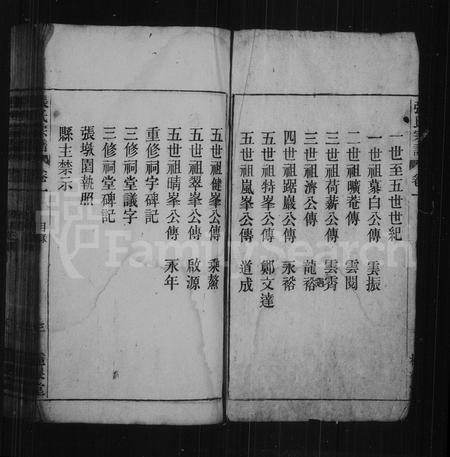 一世至五世世紀
一世祖慕白公傳 雲振
二世祖曠菴傳 雲閱
三世祖荷薪公傳 雲霄
三世祖濟公傳 龍裕
四世祖躍巖公傳 永裕
五世祖特峯公傳 鄭文達
五世祖嵐峯公傳 道成
五世祖健峯公傳 乘鰲
五世祖翠峯公傳 啟源
五世祖晴峯公傳 永年
重修祠宇碑記
三修祠堂議字
三修祠堂碑記
張墩園執照
縣主禁示
張氏宗譜 卷一 目錄
FamilySearch